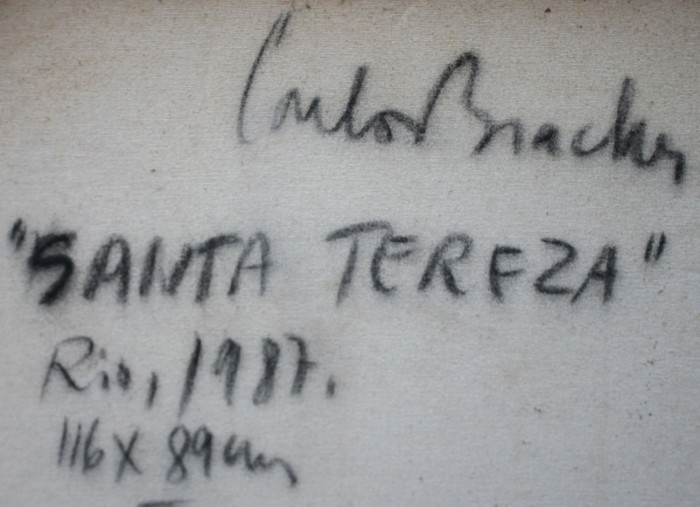 Carlos Bracher
"SANTA TEREZA"
Rio, 1987.
116 X 89 cm